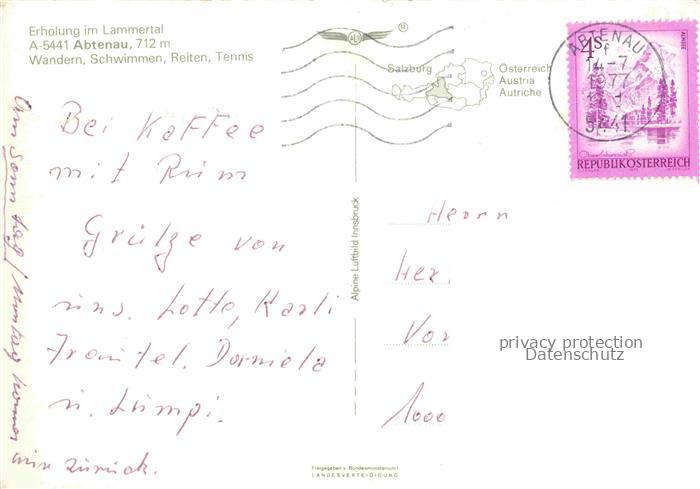 Erholung im Lammertal
A-5441 Abtenau, 712 m
Wandern, Schwimmen, Reiten, Tennis
®
Salzburg
Österreich
Austria
Autriche
ABTENAU
f
14-7
1977
5441
4s
ALMSEE
REPUBLIK ÖSTERREICH
Bei Kaffee
mit Rum
Grütze von
uns. Lotte, Karli
Fräutel. Daniela
u. Lumpi.
Am Sonntag / Montag kommen
wir zurück.
Alpine Luftbild Innsbruck
Herrn
Her
Vor
1000
privacy protection
Datenschutz
Freigegeben v. Bundesministerium f.
LANDESVERTEIDIGUNG